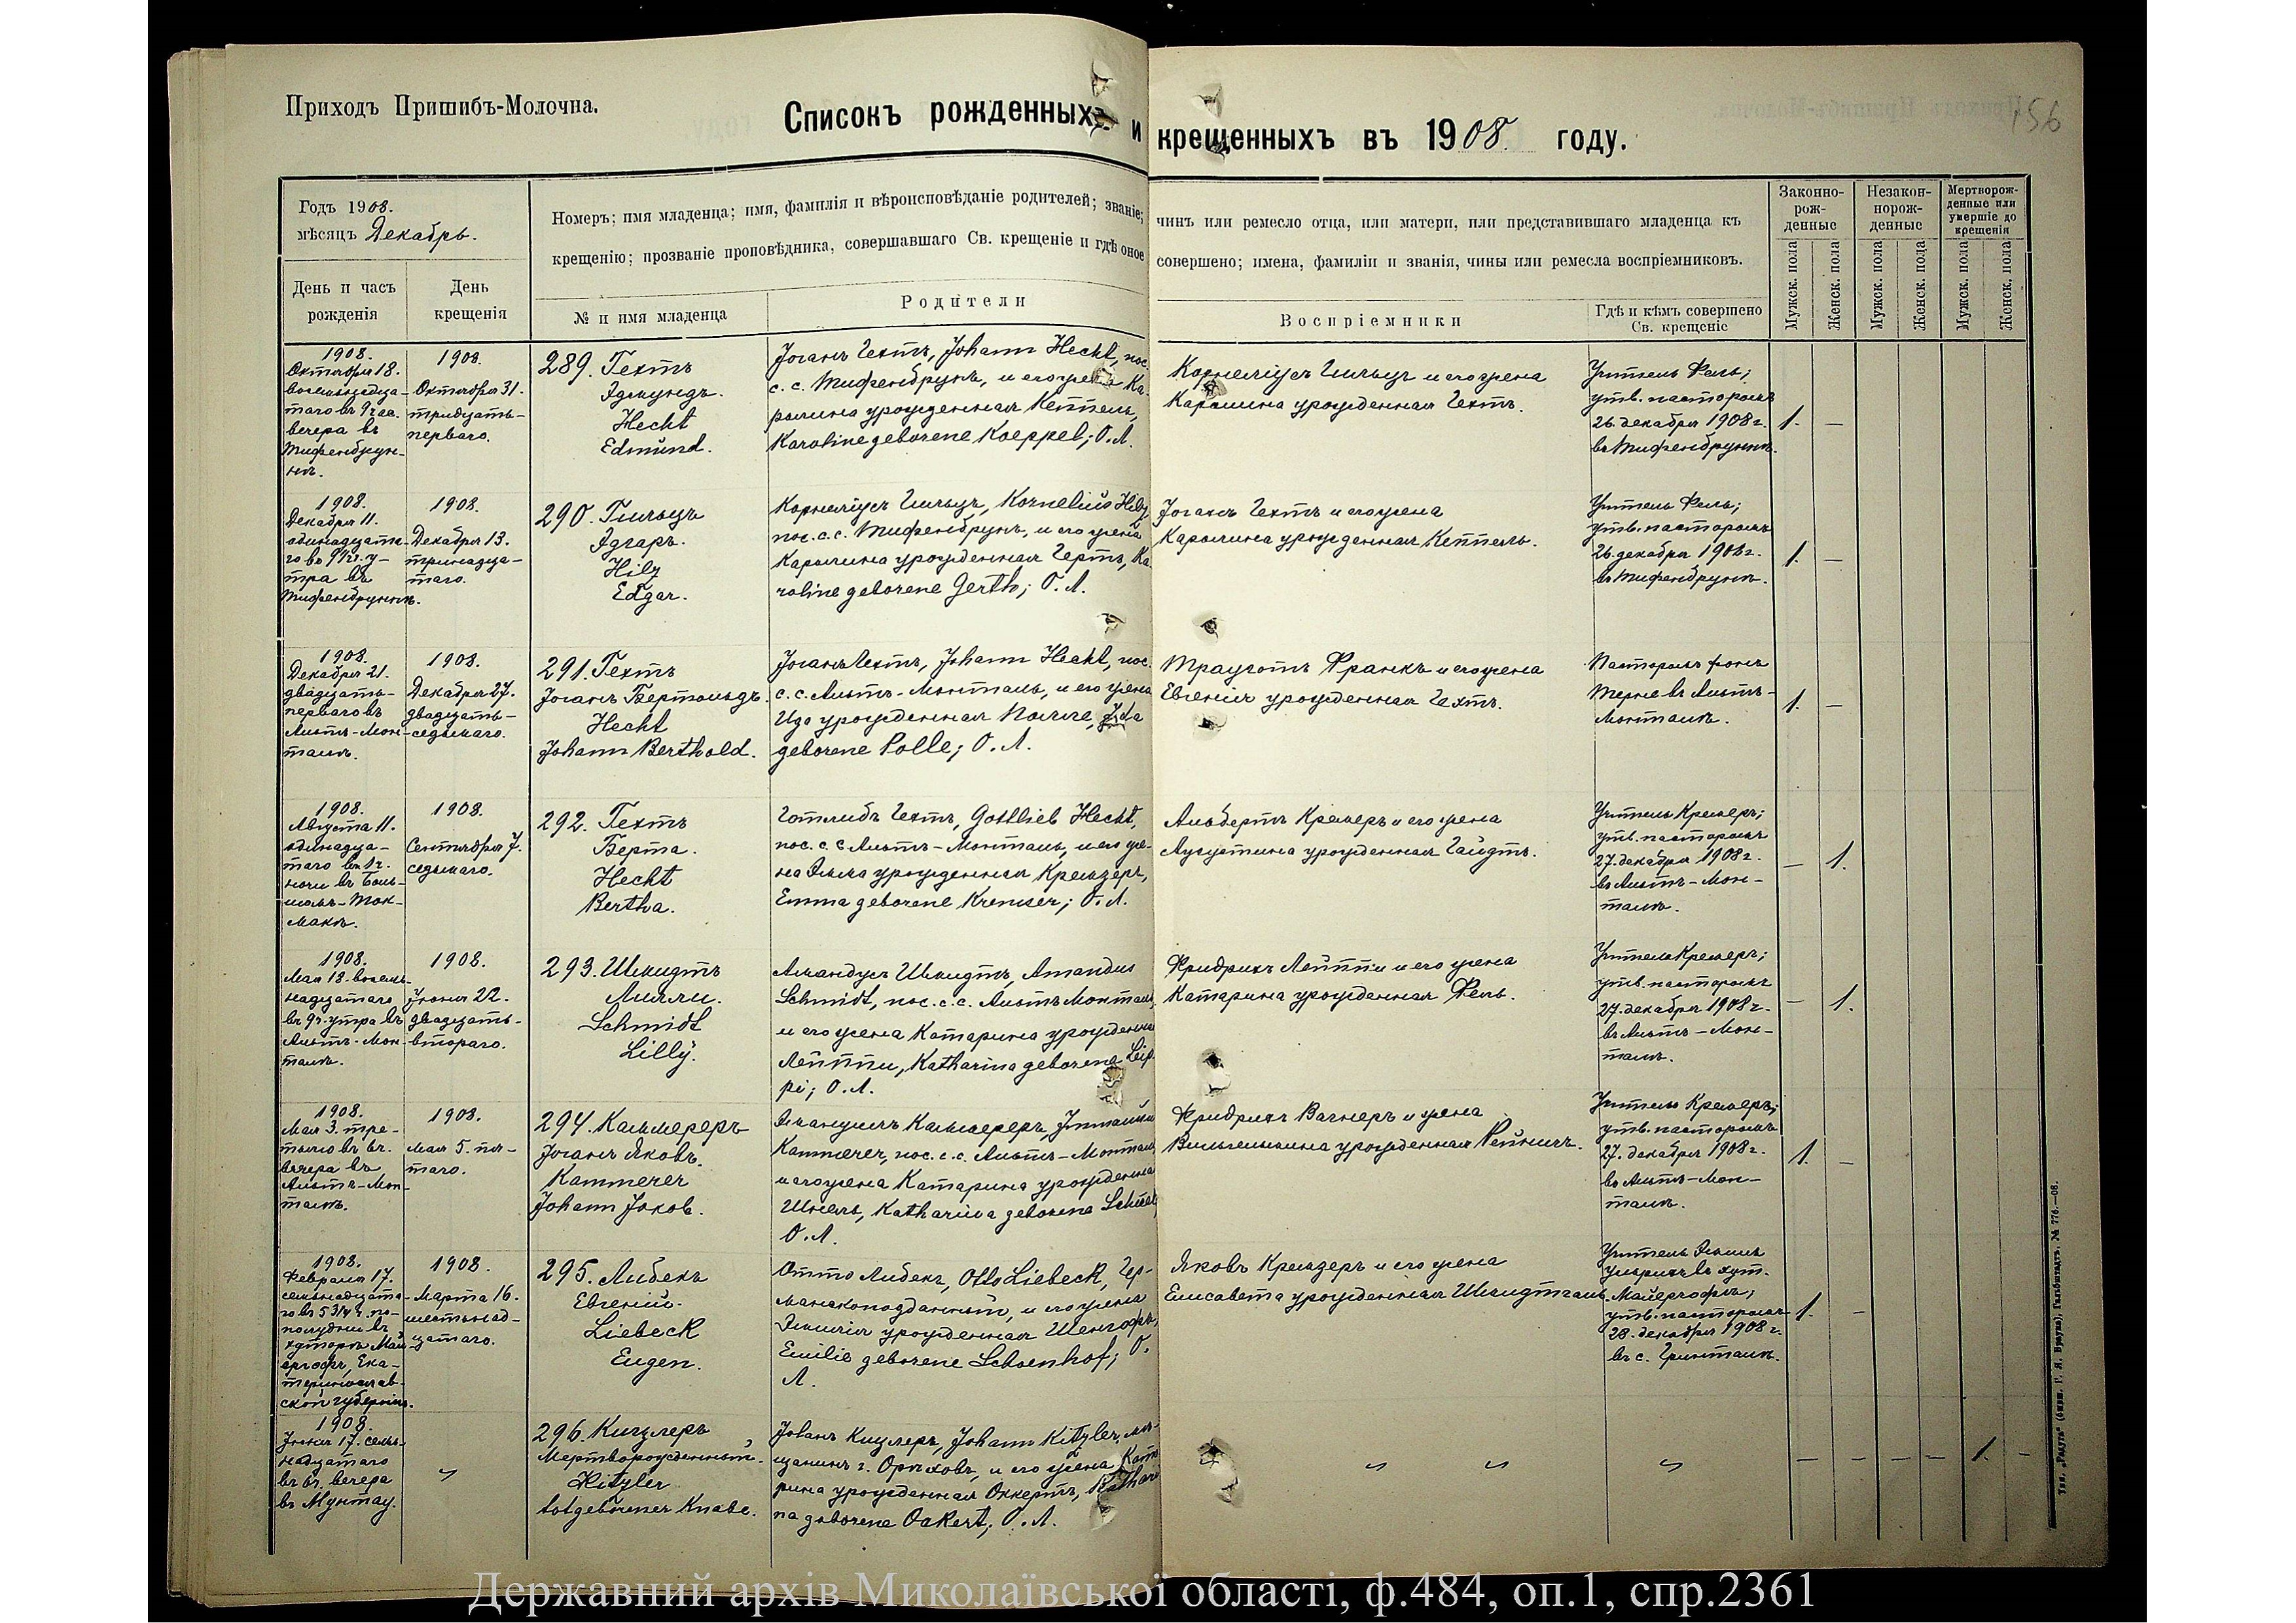 Приходъ Пришибъ-Молочна.
156
Списокъ рожденныхъ и крещенныхъ въ 1908. году.
Годъ 1908.
мѣсяцъ Декабрь.
День и часъ рожденія
День крещенія
Номеръ; имя младенца; имя, фамилія и вѣроисповѣданіе родителей; званіе; чинъ или ремесло отца, или матери, или представившаго младенца къ
крещенію; прозваніе проповѣдника, совершавшаго Св. крещеніе и гдѣ оное совершено; имена, фамиліи и званія, чины или ремесла воспріемниковъ.
№ и имя младенца
Родители
Воспріемники
Гдѣ и кѣмъ совершено
Св. крещеніе
Законно-
рож-
денные
Незакон-
норож-
денные
Мертворож-
денные или
умершіе до
крещенія
Мужск. пола
Женск. пола
Мужск. пола
Женск. пола
Мужск. пола
Женск. пола
1908.
Октября 18.
восемнадца-
таго въ 9 час.
вечера въ
Тифенбрун-
нѣ.
1908.
Октября 31.
тридцать-
перваго.
289. Гехтъ
Эдмундъ.
Hecht
Edmund.
Іоганъ Гехтъ, Johann Hecht, пос.
с. с. Тифенбрунъ, и его жена Ка-
ролина урожденная Кеппель,
Karoline geborene Koeppel; О. Л.
Корнеліусъ Гильцъ и его жена
Каролина урожденная Гехтъ.
Учитель Фель;
утв. пасторомъ
26. декабря 1908 г.
въ Тифенбруннѣ.
1. —
1908.
Декабря 11.
одинадцата-
го въ 9½ ч. у-
тра въ
Тифенбруннѣ.
1908.
Декабря 13.
тринадца-
таго.
290. Гильцъ
Эдгаръ.
Hilz
Edgar.
Корнеліусъ Гильцъ, Kornelius Hilz
пос. с. с. Тифенбрунъ, и его жена
Каролина урожденная Гертъ, Ka-
roline geborene Gerth; О. Л.
Іоганъ Гехтъ и его жена
Каролина урожденная Кеппель.
Учитель Фель;
утв. пасторомъ
26. декабря 1908 г.
въ Тифенбруннѣ.
1. —
1908.
Декабря 21.
двадцать-
перваго въ
Альтъ-Мон-
талѣ.
1908.
Декабря 27.
двадцать-
седьмаго.
291. Гехтъ
Іоганъ Бертольдъ.
Hecht
Johann Berthold.
Іоганъ Гехтъ, Johann Hecht, пос.
с. с. Альтъ-Монталь, и его жена
Ида урожденная Полле, Ida
geborene Polle; О. Л.
Трауготъ Франкъ и его жена
Евгенія урожденная Гехтъ.
Пасторомъ фонъ
Терне въ Альтъ-
Монталѣ.
1. —
1908.
Августа 11.
одинадца-
таго въ 1 ч.
ночи въ Боль-
шомъ-Ток-
макѣ.
1908.
Сентября 7.
седьмаго.
292. Гехтъ
Берта.
Hecht
Bertha.
Готлибъ Гехтъ, Gottlieb Hecht,
пос. с. с. Альтъ-Монталь, и его же-
на Эмма урожденная Кремзеръ,
Emma geborene Kremser; О. Л.
Альбертъ Кремеръ и его жена
Аугустина урожденная Гайдтъ.
Учитель Кремеръ;
утв. пасторомъ
27. декабря 1908 г.
въ Альтъ-Мон-
талѣ.
— 1.
1908.
Мая 18. восем-
надцатаго
въ 9 ч. утра въ
Альтъ-Мон-
талѣ.
1908.
Іюня 22.
двадцать-
втораго.
293. Шмидтъ
Лилли.
Schmidt
Lilly.
Амандусъ Шмидтъ, Amandus
Schmidt, пос. с. с. Альтъ Монталь,
и его жена Катарина урожденная
Лейппи, Katharina geborene Leip-
pi; О. Л.
Фридрихъ Лейппи и его жена
Катарина урожденная Фель.
Учитель Кремеръ;
утв. пасторомъ
27. декабря 1908 г.
въ Альтъ-Мон-
талѣ.
— 1.
1908.
Мая 3. тре-
тьяго въ 6 ч.
вечера въ
Альтъ-Мон-
талѣ.
1908.
Мая 5. пя-
таго.
294. Каммереръ
Іоганъ Яковъ.
Kammerer
Johann Jakob.
Эмануилъ Каммереръ,
Kammerer, пос. с. с. Альтъ-Монталь
и его жена Катарина урожденная
Шнель, Katharina geborene Schnell,
О. Л.
Фридрихъ Вагнеръ и жена
Вильгельмина урожденная Рейнихъ.
Учитель Кремеръ;
утв. пасторомъ
27. декабря 1908 г.
въ Альтъ-Мон-
талѣ.
1. —
1908.
Февраля 17.
семьнадцата-
го въ 5 3/4 ч. по-
полудни въ
хуторѣ Май-
ергофъ, Ека-
теринослав-
ской губерніи.
1908.
Марта 16.
шестьнад-
цатаго.
295. Либекъ
Евгеній.
Liebeck
Eugen.
Отто Либекъ, Otto Liebeck, Гер-
манскоподданный, и его жена
Эмилія урожденная Шенгофъ,
Emilie geborene Schoenhof; О.
Л.
Яковъ Кремзеръ и его жена
Елисавета урожденная Шмидтгаль.
Учитель Эмиль
Ульрихъ въ хут.
Майергофѣ;
утв. пасторомъ
28. декабря 1908 г.
въ с. Гринталѣ.
1. —
1908.
Іюня 17. семь-
надцатаго
въ 6 ч. вечера
въ Мунтау.
296. Кицлеръ
Мертворожденный.
Kitzler
totgeborener Knabe.
Іоганъ Кицлеръ, Johann Kitzler, мѣ-
щанинъ г. Орѣховъ, и его жена Ката-
рина урожденная Оккертъ, Kathari-
na geborene Ockert; О. Л.
— — — — 1. —
Тип. „Радуга“ (бывш. Г. Я. Брауна), Гальбштадтъ. № 776.—08.
Державний архів Миколаївської області, ф.484, оп.1, спр.2361